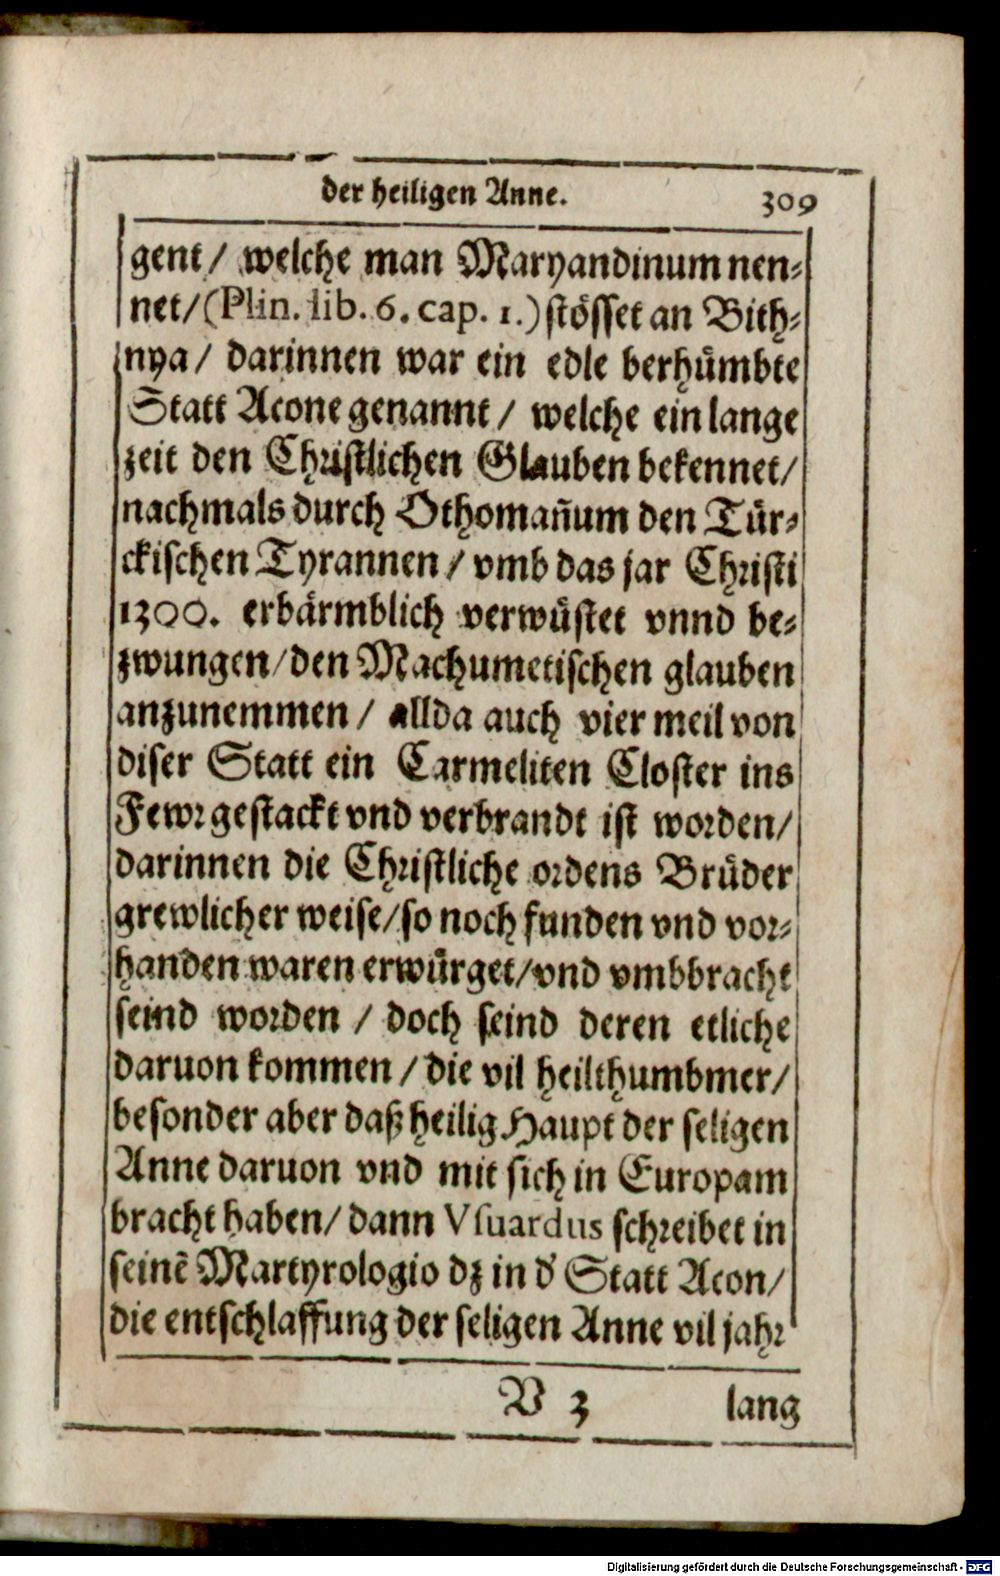 der heiligen Anne. 309
gent/ welche man Maryandinum nen-
net/(Plin. lib. 6. cap. 1.) stösset an Bith-
nya/ darinnen war ein edle berhümbte
Statt Acone genannt/ welche ein lange
zeit den Christlichen Glauben bekennet/
nachmals durch Othomañum den Tür-
ckischen Tyrannen/ vmb das jar Christi
1300. erbärmblich verwüstet vnnd be-
zwungen/den Machumetischen glauben
anzunemmen/ allda auch vier meil von
diser Statt ein Carmeliten Closter ins
Fewr gestackt vnd verbrandt ist worden/
darinnen die Christliche ordens Brüder
grewlicher weise/so noch funden vnd vor-
handen waren erwürget/vnd vmbbracht
seind worden / doch seind deren etliche
daruon kommen/die vil heilthumbmer/
besonder aber daß heilig Haupt der seligen
Anne daruon vnd mit sich in Europam
bracht haben/ dann Vsuardus schreibet in
seinē Martyrologio dz in d' Statt Acon/
die entschlaffung der seligen Anne vil jahr
V 3 lang
Digitalisierung gefördert durch die Deutsche Forschungsgemeinschaft - DFG